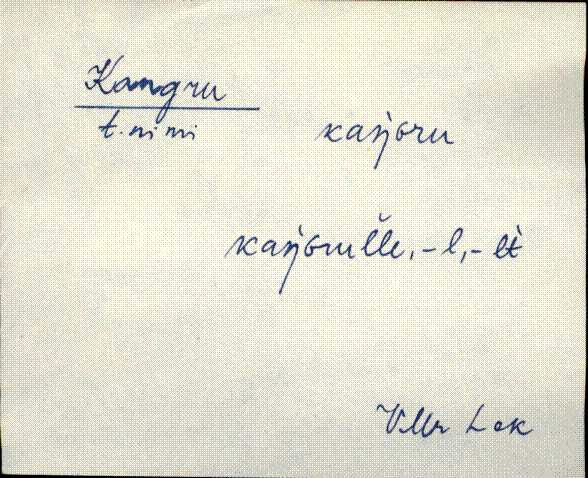 Kangru
t. nimi
kaŋ̀ɢru
kaŋ̀ɢrulle, -l, -lt̀
VMr Lok